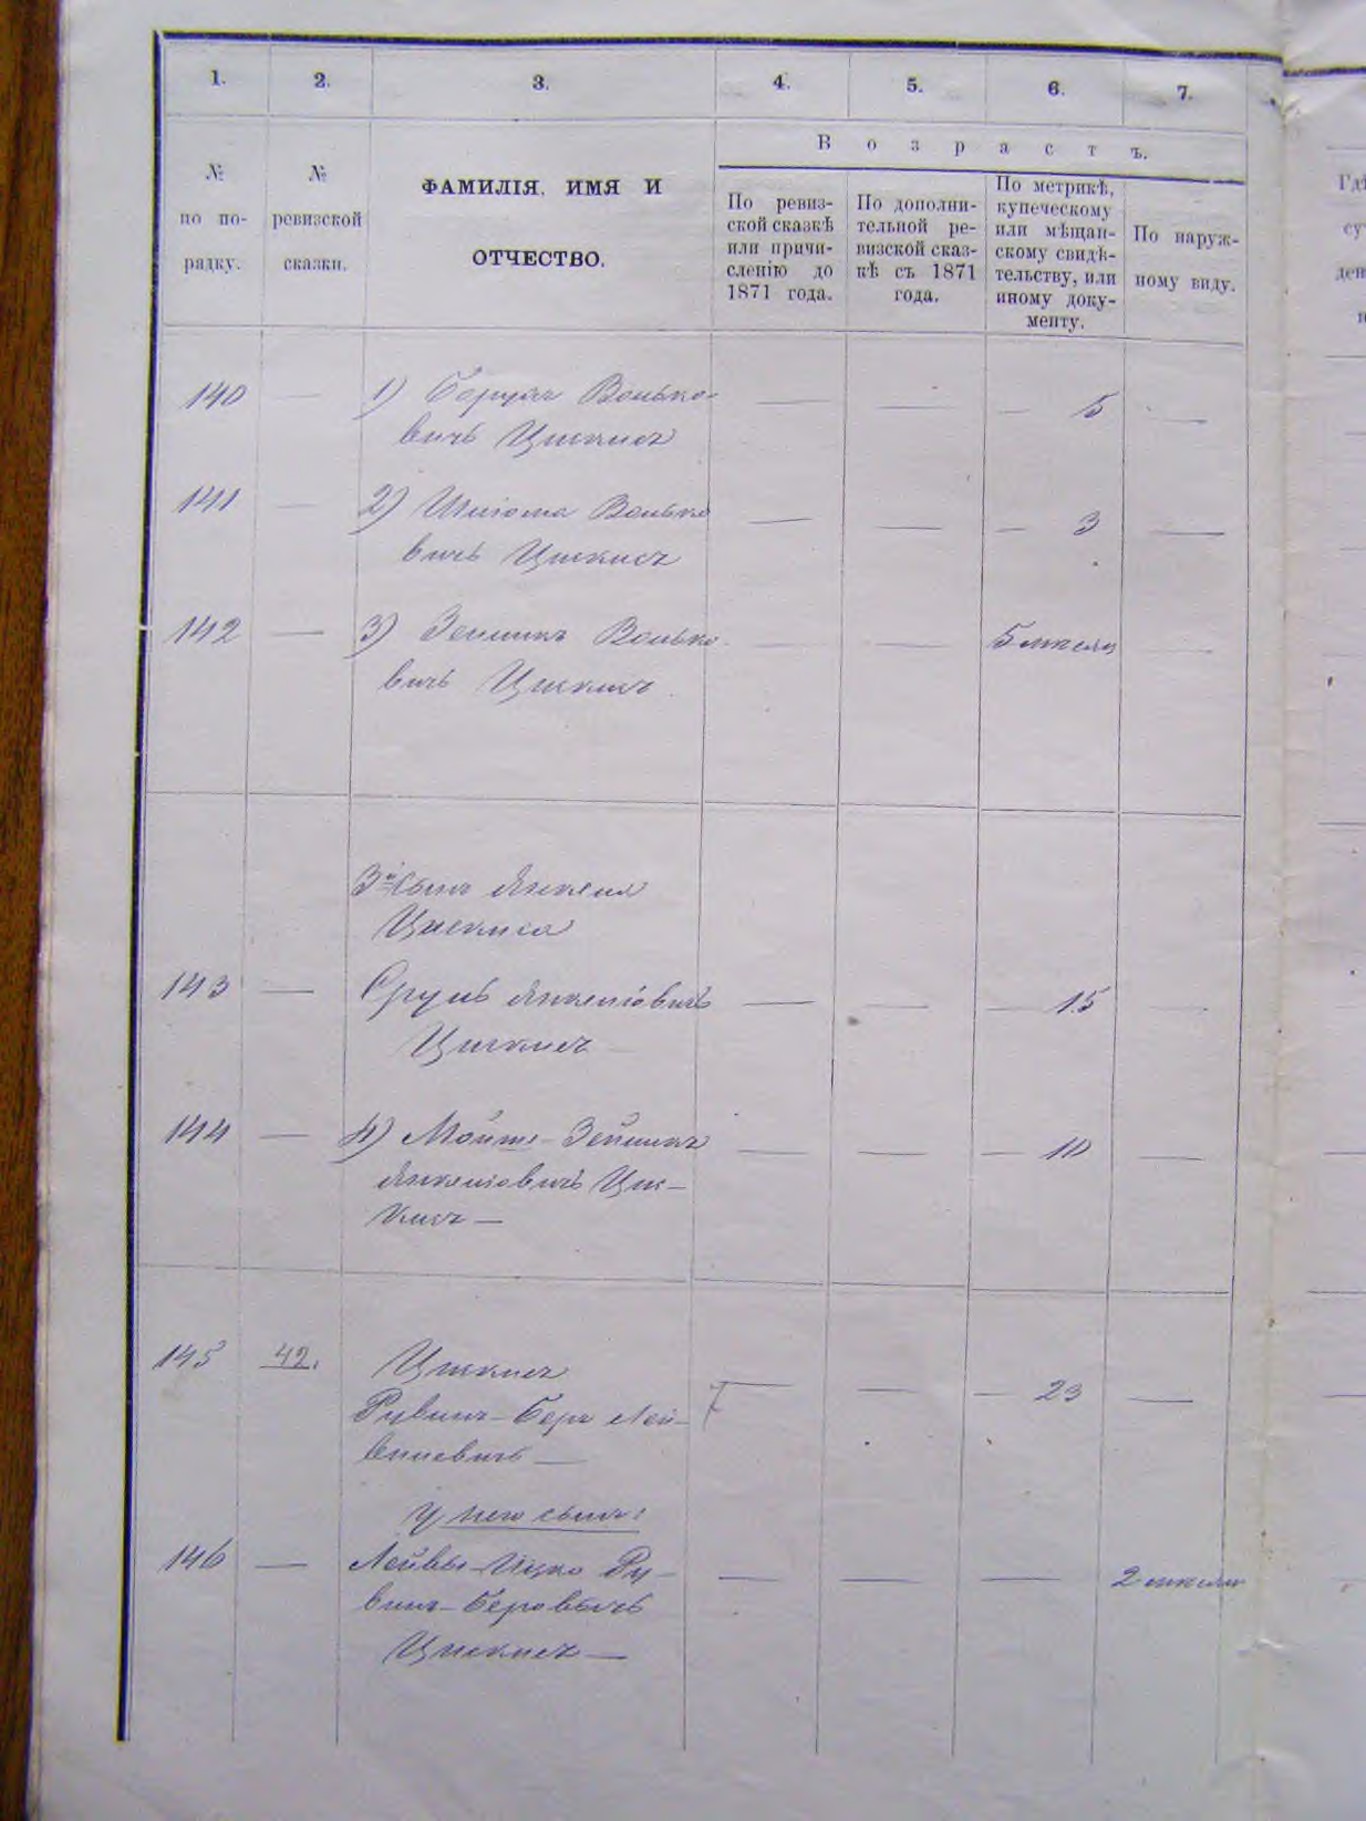 1. 2. 3. 4. 5. 6. 7.
№ по по-рядку.
№ ревизской сказки.
ФАМИЛІЯ, ИМЯ И
ОТЧЕСТВО.
Возрастъ.
По ревиз-
ской сказкѣ
или причи-
сленію до
1871 года.
По дополни-
тельной ре-
визской сказ-
кѣ съ 1871
года.
По метрикѣ,
купеческому
или мѣщан-
скому свидѣ-
тельству, или
иному доку-
менту.
По наруж-
ному виду.
140 — 1) Борухъ Волько- — — — 5 —
вичъ Цискисъ
141 — 2) Шліома Волько — — — 3 —
вичъ Цискисъ
142 — 3) Зелманъ Волько — — 5 мѣсяц —
вичъ Цискисъ
3й сынъ Янкеля
Цискиса
143 — Сруль Янкеліовичъ — — — 15 —
Цискисъ
144 — 4) Мойше-Зейманъ — — — 10 —
Янкеліовичъ Цис-
кисъ —
145 42. Цискисъ 7 — — 23 —
Рувинъ-Беръ Лей-
вичъ —
У него сынъ:
146 — Лейвы-Ицко Ру- — — — 2 мѣсяц
винъ-Беровичъ
Цискисъ —